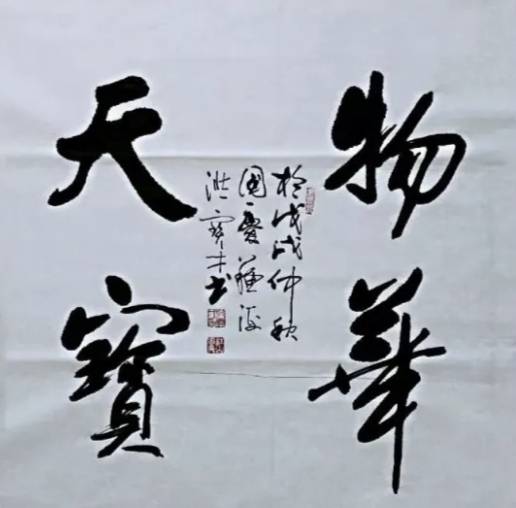 物華
天寶
於戊戌仲秋
國慶
洪寶才書